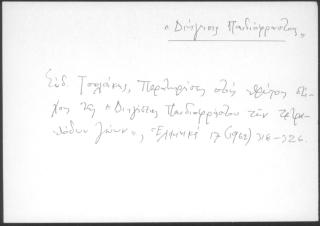 « Διήγησις Παιδιόφραστος »
Εὐδ. Τσολάκης, Παρατηρήσεις στὶς πρῶτες στί-
χους τῆς « Διηγήσεως Παιδιοφράστου τῶν τετρα-
πόδων ζῴων », Ἑλληνικά 17 (1962) 318-326.